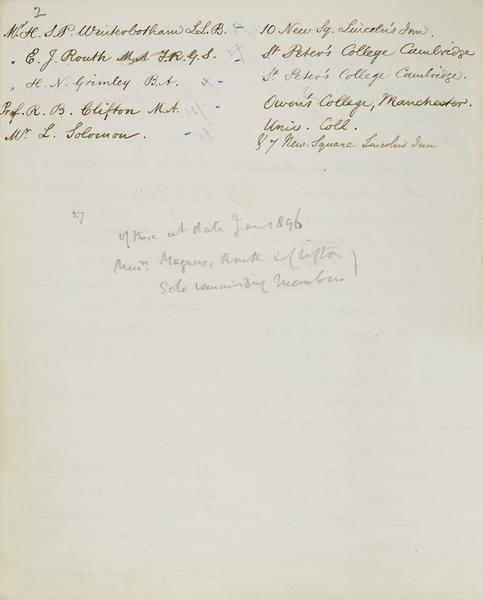 2
Mr. H. S. P. Winterbotham LL.B. - 10 New Sq. Lincoln's Inn.
" E. J. Routh M.A. F.R.G.S. - x St Peter's College Cambridge
" H. N. Grimley B.A. x - St Peter's College Cambridge.
Prof. R. B. Clifton M.A. x - Owen's College, Manchester.
Mr. L. Solomon. x - Univ. Coll.
& 7 New Square Lincoln's Inn
27
of these at date Jan 1896
Messrs. Magnus, Routh & Clifton
Sole remaining Members